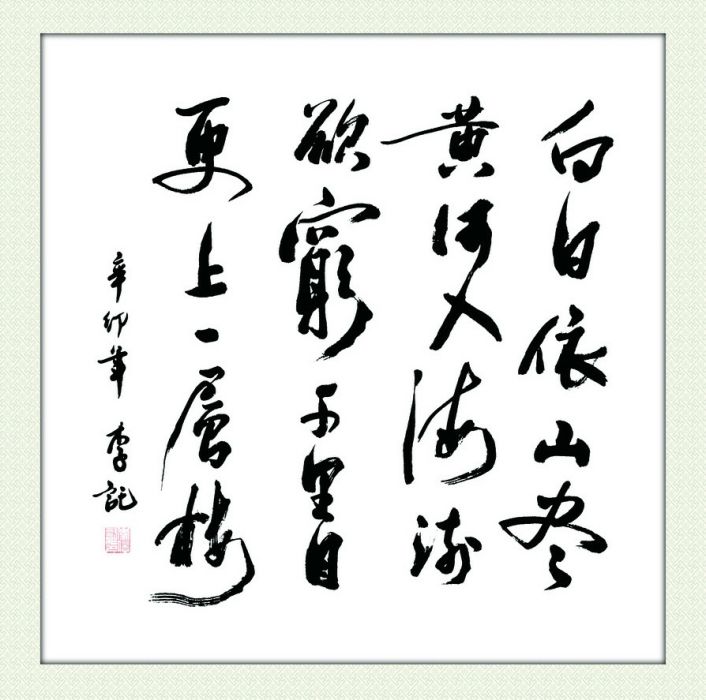 白日依山尽
黄河入海流
欲穷千里目
更上一层楼
辛卯年 李